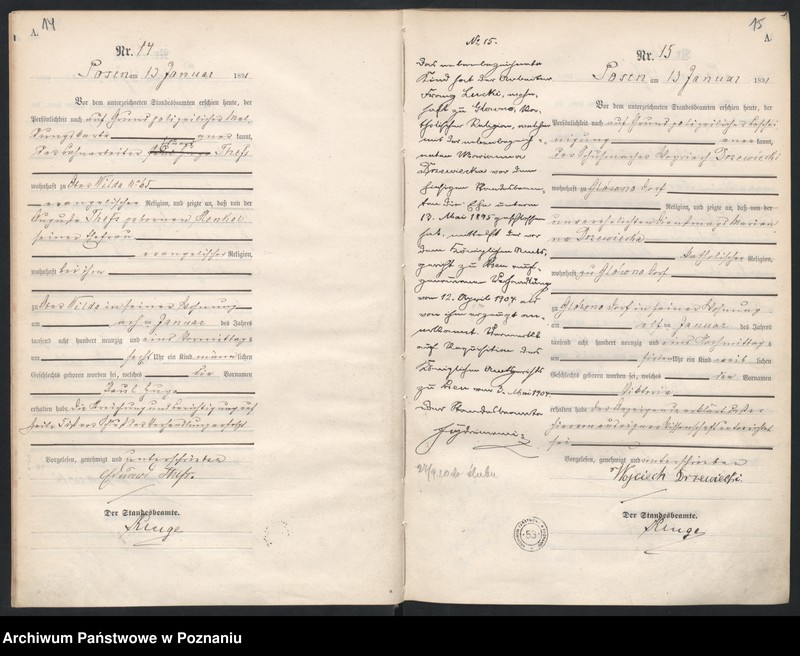 14
A.
Nr. 14
Posen am 13 Januar 1891
Vor dem unterzeichneten Standesbeamten erschien heute, der
Persönlichkeit nach auf Grund polizeilicher Mel-
dungskarte kannt,
Thess
wohnhaft zu Ober Wilda No 65
evangelischer Religion, und zeigte an, daß von der
Auguste Thess geborenen Henkel
seiner Ehefrau
evangelischer Religion,
wohnhaft bei ihm
zu Ober Wilda in seiner Wohnung
am Januar des Jahres
tausend acht hundert neunzig und eins Vormittags
um sechs Uhr ein Kind männlichen
Geschlechts geboren worden sei, welches die Vornamen
Paul
erhalten habe.
Vorgelesen, genehmigt und unterschrieben
Eduard Thess.
Der Standesbeamte.
Kruge
No 15.
Das nebenbezeichnete
Kind hat der Arbeiter
Franz wohn-
haft zu Glowno, ka-
tholischer Religion, welcher
mit der nebenbezeich-
neten Marianna
Drzewiecka vor dem
hiesigen Standesbeam-
ten die Ehe unterm
13. Mai 1895 geschlossen
hat, mittelst der vor
dem Königlichen Amts-
gericht zu Posen auf-
genommenen Verhandlung
vom 12. April 1904 als
von ihm erzeugt an-
erkannt. Vermerkt
auf Requisition des
Königlichen Amtsgerichts
zu Posen am Mai 1904.
Der Standesbeamte
15
A
Nr. 15
Posen am 13 Januar 1891
Vor dem unterzeichneten Standesbeamten erschien heute, der
Persönlichkeit nach auf Grund polizeilicher Beschei-
nigung kannt,
der Schuhmacher Woyciech Drzewiecki
wohnhaft zu Glówno Dorf
Religion, und zeigte an, daß von der
unverehelichten Dienstmagd Marian-
na Drzewiecka
katholischer Religion,
wohnhaft zu Glówno Dorf
zu Glówno Dorf in seiner Wohnung
am elften Januar des Jahres
tausend acht hundert neunzig und eins Nachmittags
um sieben Uhr ein Kind weiblichen
Geschlechts geboren worden sei, welches den Vornamen
Viktoria
erhalten habe. der Anzeigende erklärt daß er
hiervon aus eigener Wissenschaft unterrichtet
sei
Vorgelesen, genehmigt und unterschrieben
Wojciech Drzewiecki.
Der Standesbeamte.
Kruge
53
Archiwum Państwowe w Poznaniu